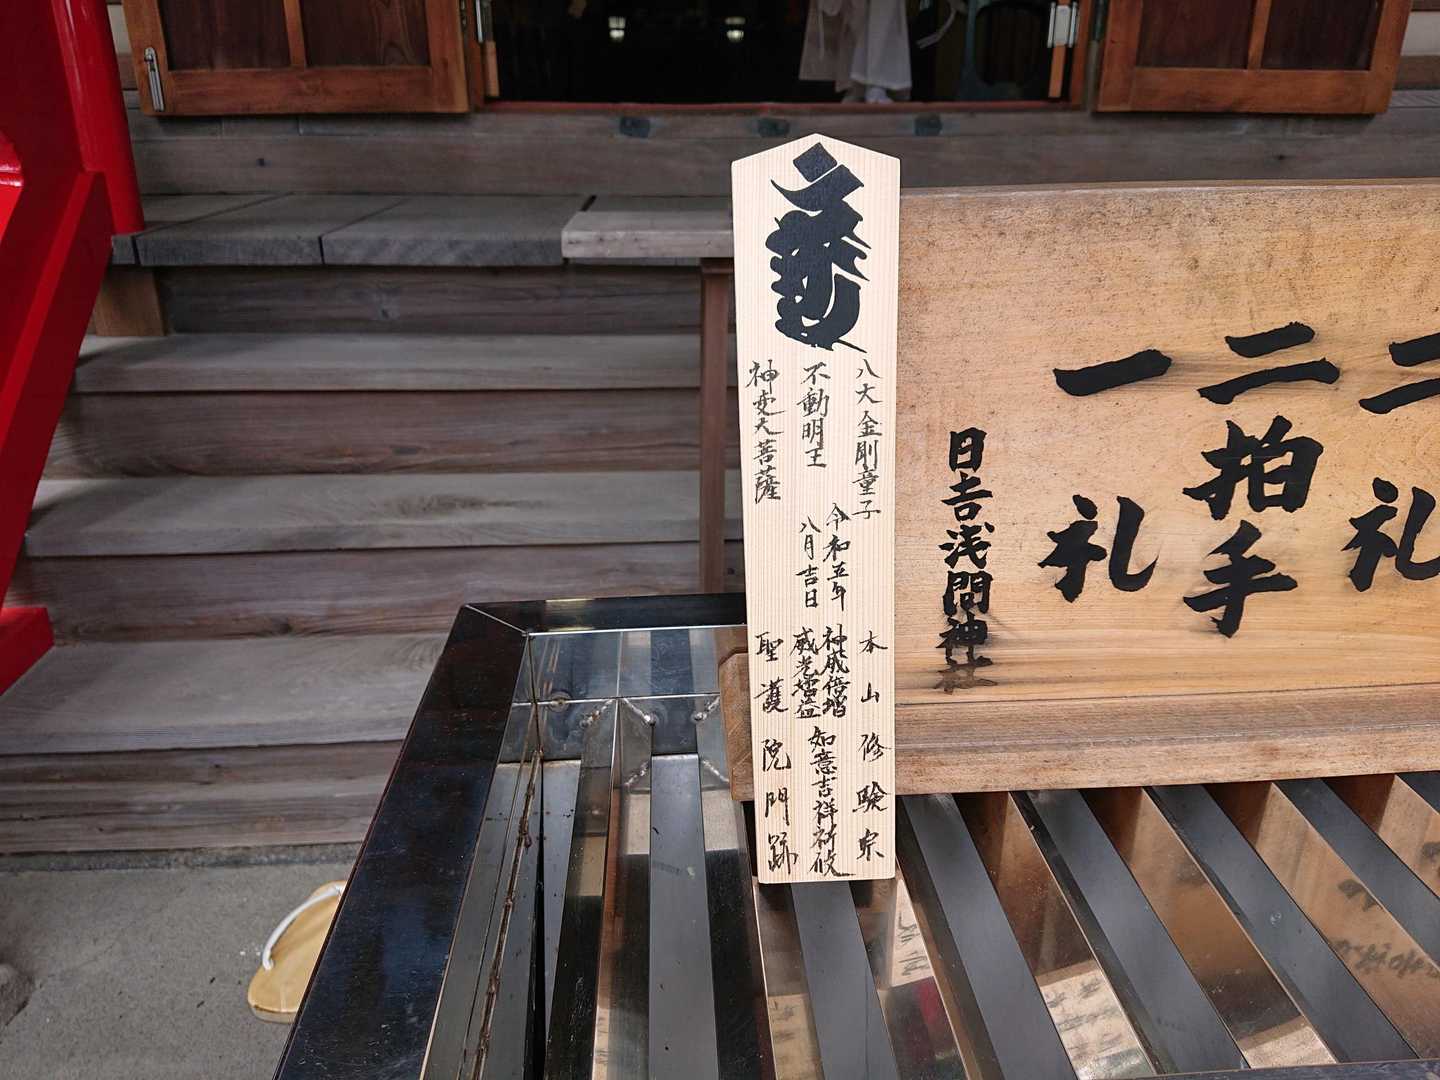 二
礼
二
拍
手
一
礼
日吉浅間神社
八大金剛童子
不動明王
神変大菩薩
令和五年
八月吉日
本山修験宗
神威倍増
威光増益
如意吉祥祈攸
聖護院門跡